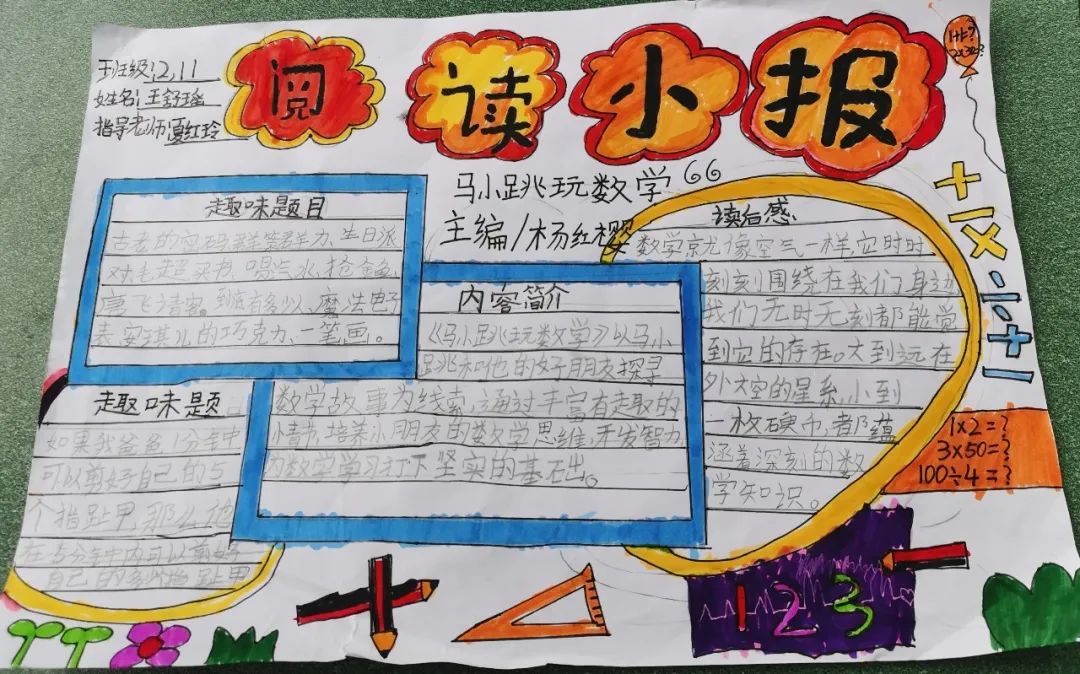 班级:2,11
姓名:王舒瑶
指导老师:夏红玲
阅读小报
1+1=?
马小跳玩数学
主编/杨红樱
趣味题目
古老的密码、群策群力、生日派
对、毛超买书、喝汽水、抢金鱼、
唐飞请客、到底有多少、魔法电子
表、安琪儿的巧克力、一笔画。
内容简介
《马小跳玩数学》以马小
跳和他的好朋友探寻
数学故事为线索,通过丰富有趣的
情节,培养小朋友的数学思维,开发智力,
为数学学习打下坚实的基础。
读后感
数学就像空气一样,它时时
刻刻围绕在我们身边
我们无时无刻都能觉
到它的存在。大到远在
外太空的星系,小到
一枚硬币,都蕴
涵着深刻的数
学知识。
趣味题
如果我爸爸1分钟
可以剪好自己的5
个指趾甲那么他
在5分钟内可以剪好
自己的多少指趾甲
+ - × ÷ + -
1×2=?
3×50=?
100÷4=?
1 2 3